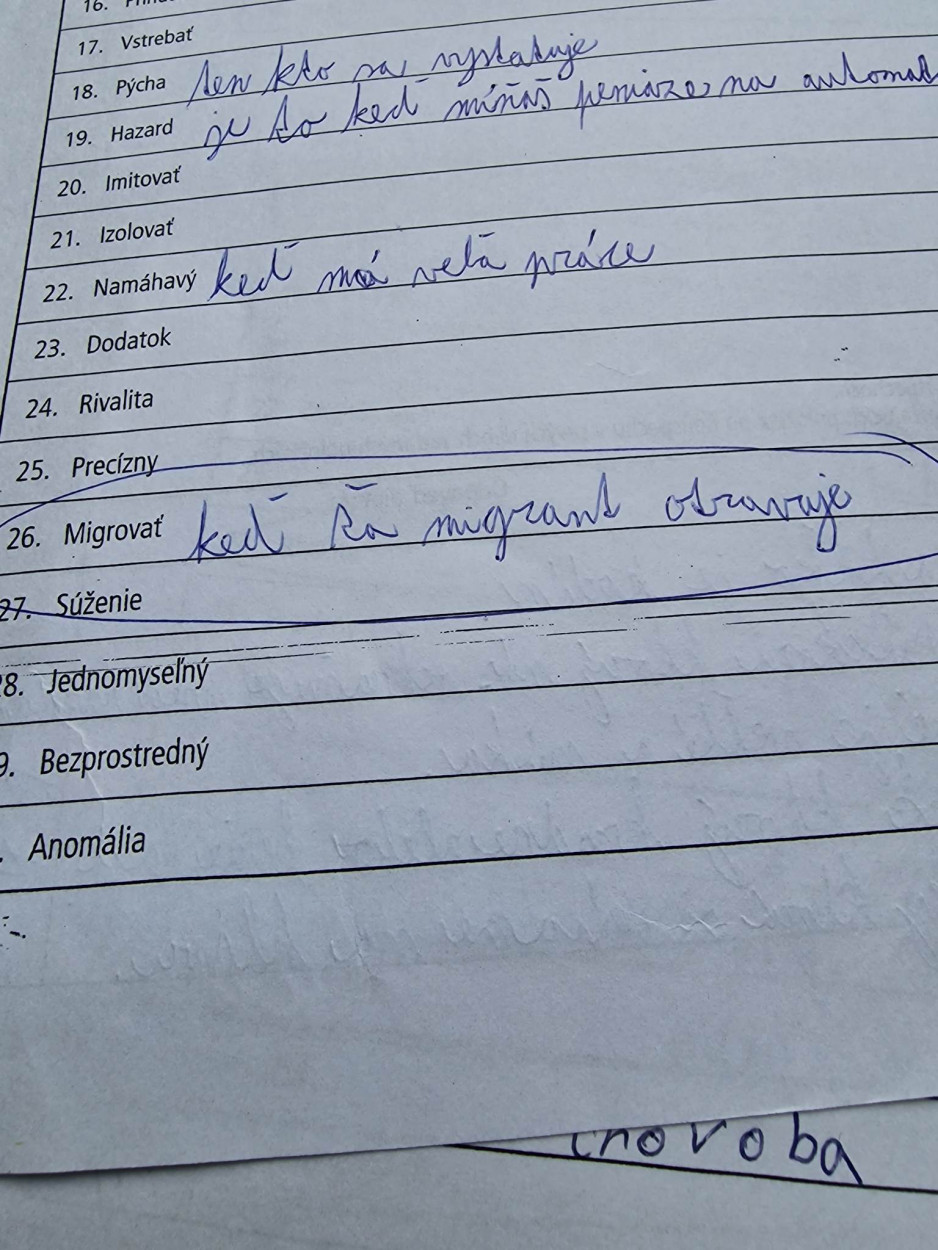 16.
17. Vstrebať
18. Pýcha ten kto sa vystatuje
19. Hazard je to keď míňaš peniaze na automat
20. Imitovať
21. Izolovať
22. Namáhavý keď má veľa práce
23. Dodatok
24. Rivalita
25. Precízny
26. Migrovať keď ťa migrant otravuje
27. Súženie
28. Jednomyseľný
9. Bezprostredný
. Anomália
choroba